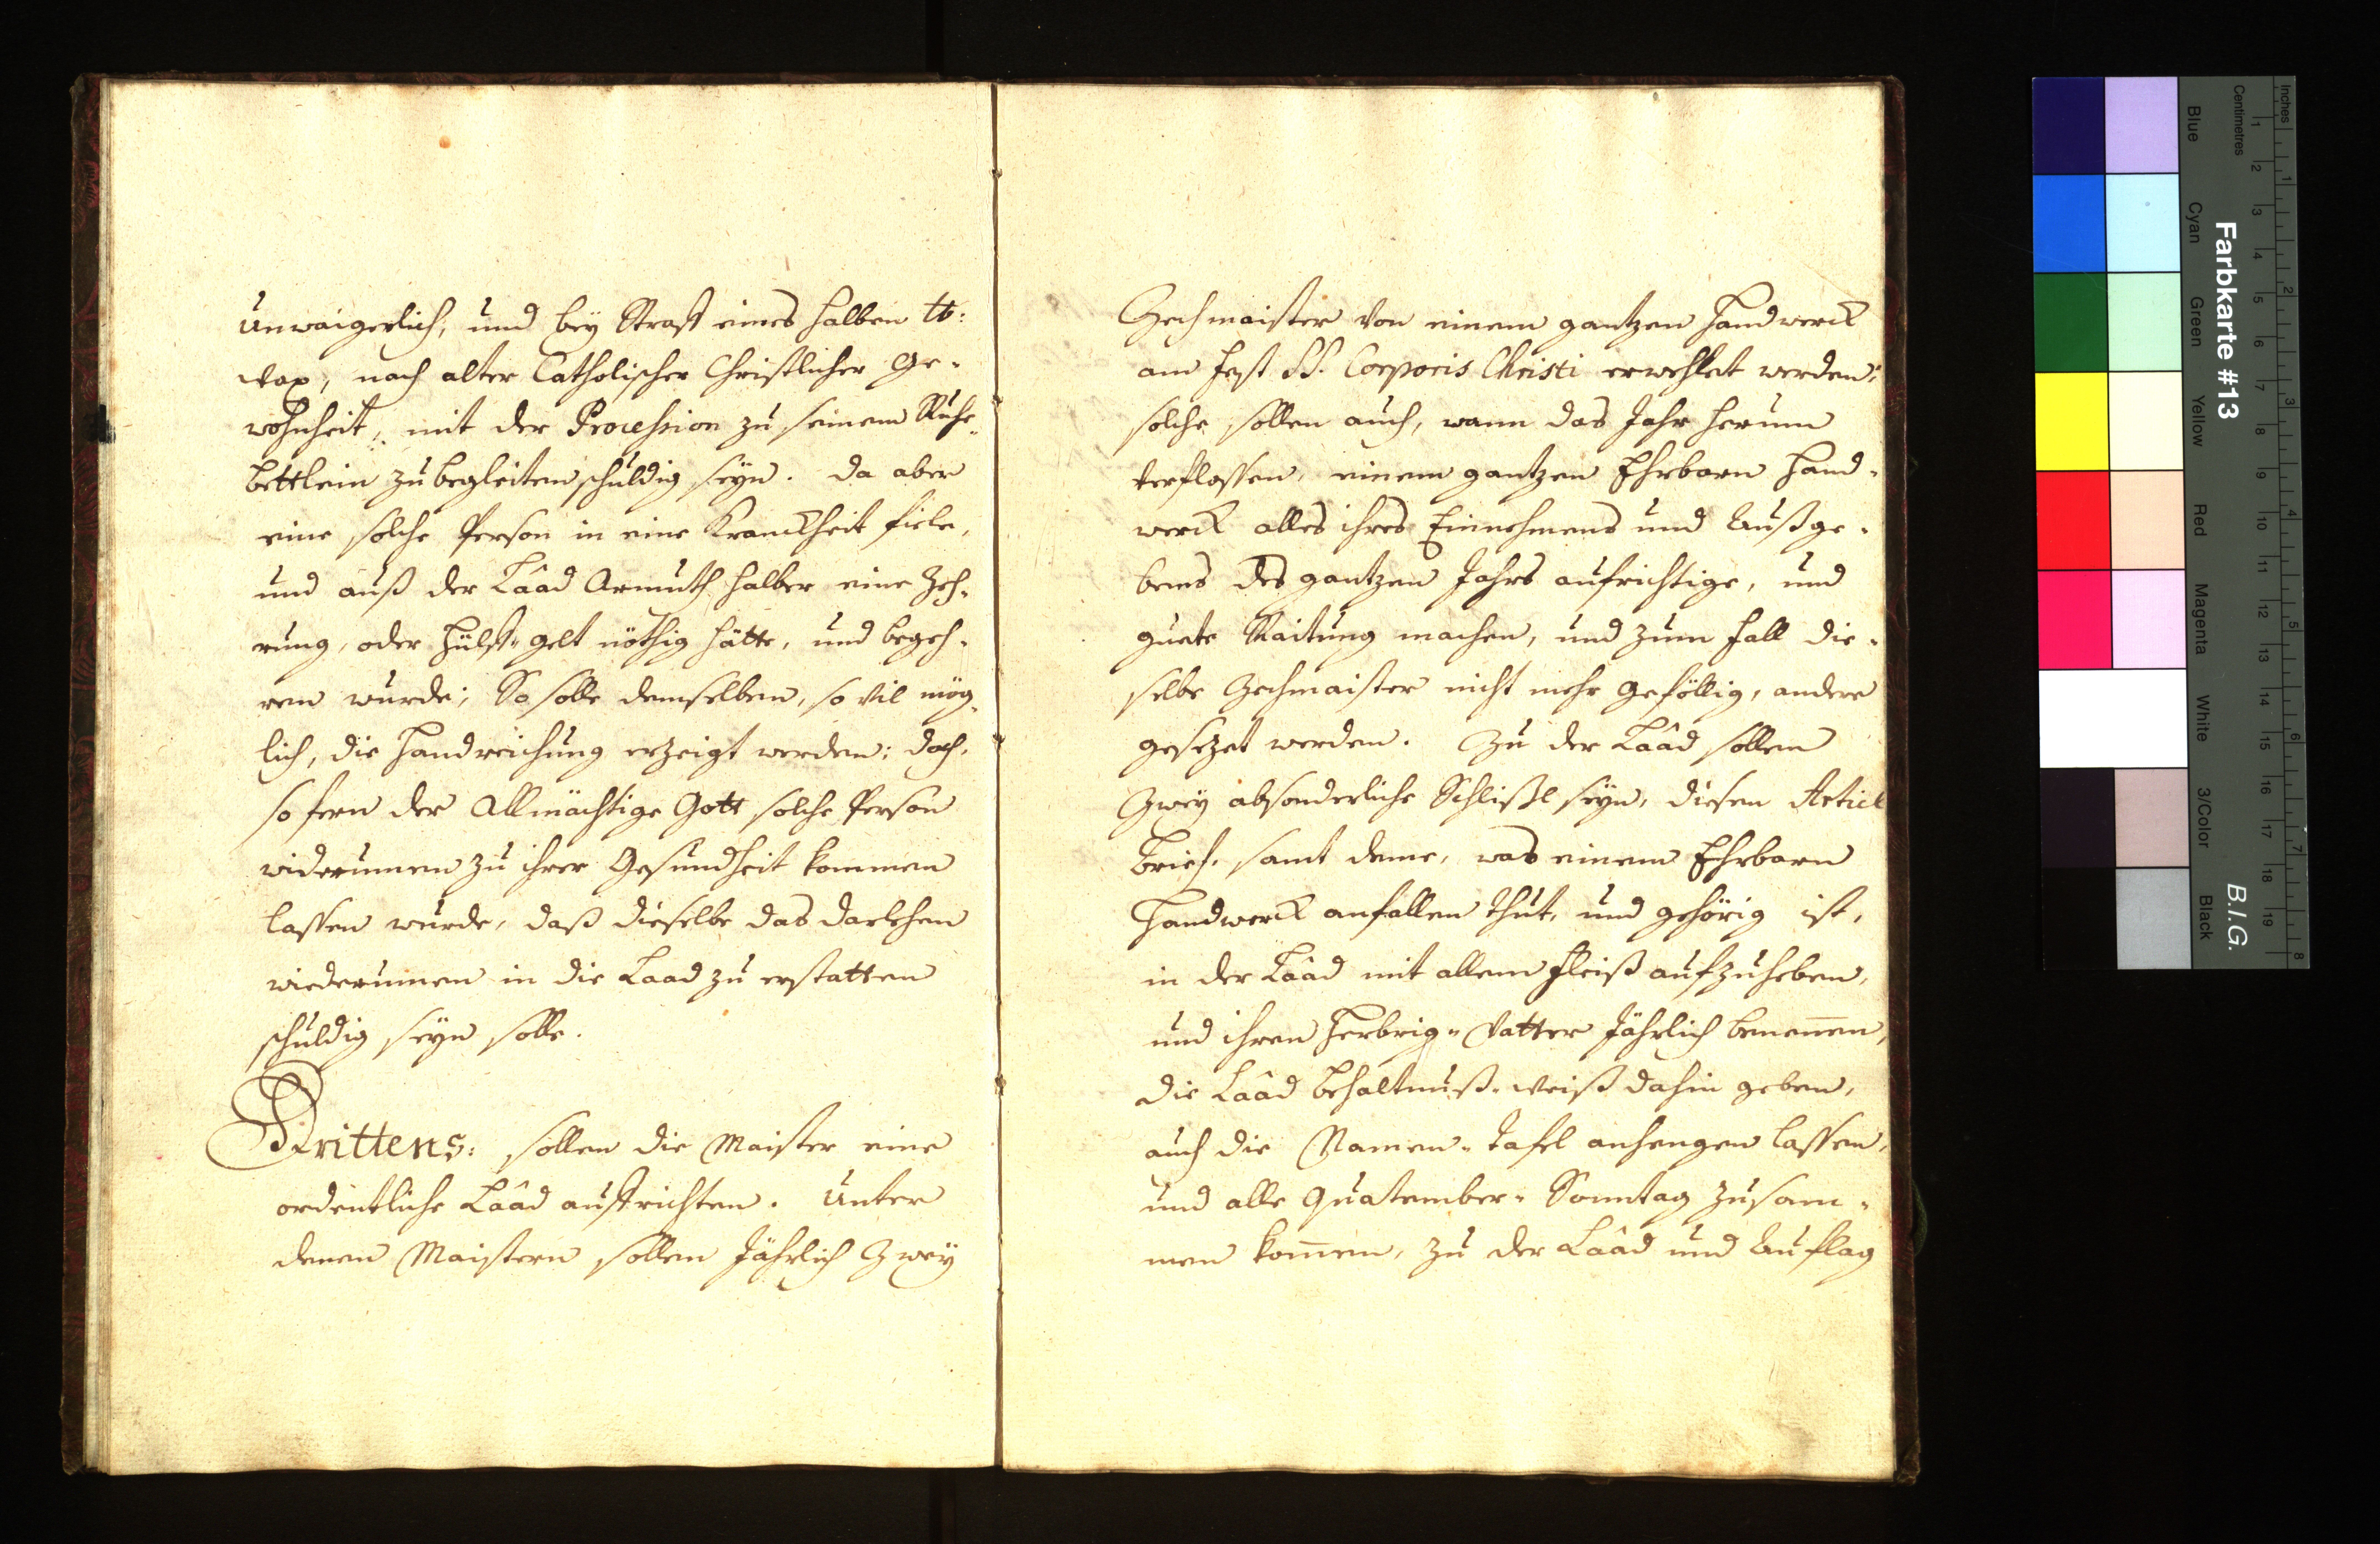 unwaigerlich, und bey Straff eines halben ℔:
wax, nach alter Catholischer Christlicher Ge-
wohnheit, mit der Procession zu seinem Ruhe-
bettlein zu begleiten schuldig seyn. Da aber
eine solche Person in eine Kranckheit fiele,
und auß der Lââd Armuth halber eine Zeh-
rung, oder Hülff-gelt nöthig hätte, und begeh-
ren wurde; So solle demselben, so vil mög-
lich, die Handreichung erzeigt werden: doch,
so fern der Allmächtige Gott solche Person
widerumen zu ihrer Gesundheit kommen
lassen wurde, daß dieselbe das darlehen
wiederumen in die Laad zu erstatten
schuldig seyn solle.
Drittens: sollen die Maister eine
ordentliche Lââd auffrichten. Unter
denen Maistern sollen Jährlich Zwey
Zechmaister von einem gantzen Handwerck
am Fest SS. Corporis Christi erwehlet werden:
solche sollen auch, wann das Jahr herum
verflossen, einem gantzen Ehrbarn Hand-
werck alles ihres Einnehmens und Außge-
bens des gantzen Jahrs aufrichtige, und
guete Raitung machen, und zum fall die-
selbe Zechmaister nicht mehr gefällig, andere
gesezet werden. Zu der Lââd sollen
Zwey absonderliche Schlißl seyn, diesen Articl
Brief, samt deme, was einem Ehrbarn
Handwerck anfallen thut, und gehörig ist,
in der Lââd mit allem fleiß aufzuheben,
und ihren Herbrig-Vatter Jährlich benennen,
die Lââd Behaltnuß-weiß dahin geben,
auch die Namen-Tafel anhengen lassen,
und alle Quatember-Sonntag zusam-
men kommen, zu der Lââd und Auflag
Farbkarte #13
B.I.G.
Inches
Centimetres
1 2 3 4 5 6 7 8
1 2 3 4 5 6 7 8 9 10 11 12 13 14 15 16 17 18 19
Blue
Cyan
Green
Yellow
Red
Magenta
White
3/Color
Black